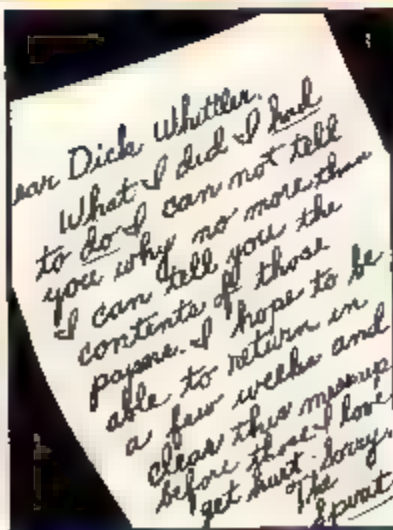 ear Dick Whittler,
What I did I had
to do I can not tell
you why no more than
I can tell you the
contents of those
papers. I hope to be
able to return in
a few weeks and
clear this mess up
before those I love
get hurt. Sorry,
The
Spirit